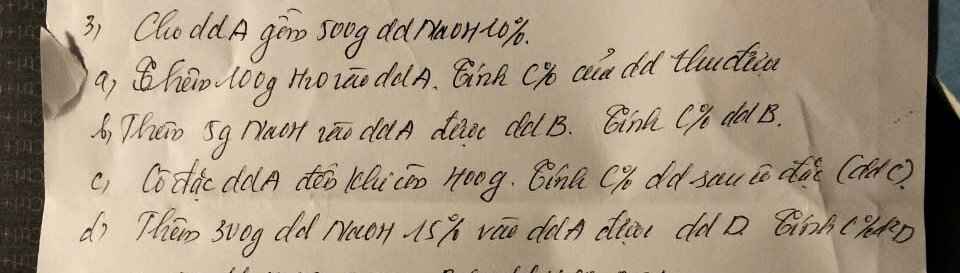 3, Cho dd A gồm 500g dd NaOH 10%.
a, Thêm 100g H2O vào dd A. Tính C% của dd thu được
b, Thêm 5g NaOH vào dd A được dd B. Tính C% dd B.
c, Cô đặc dd A đến khi còn 400g. Tính C% dd sau cô đặc (dd C).
d, Thêm 300g dd NaOH 15% vào dd A được dd D. Tính C% dd D